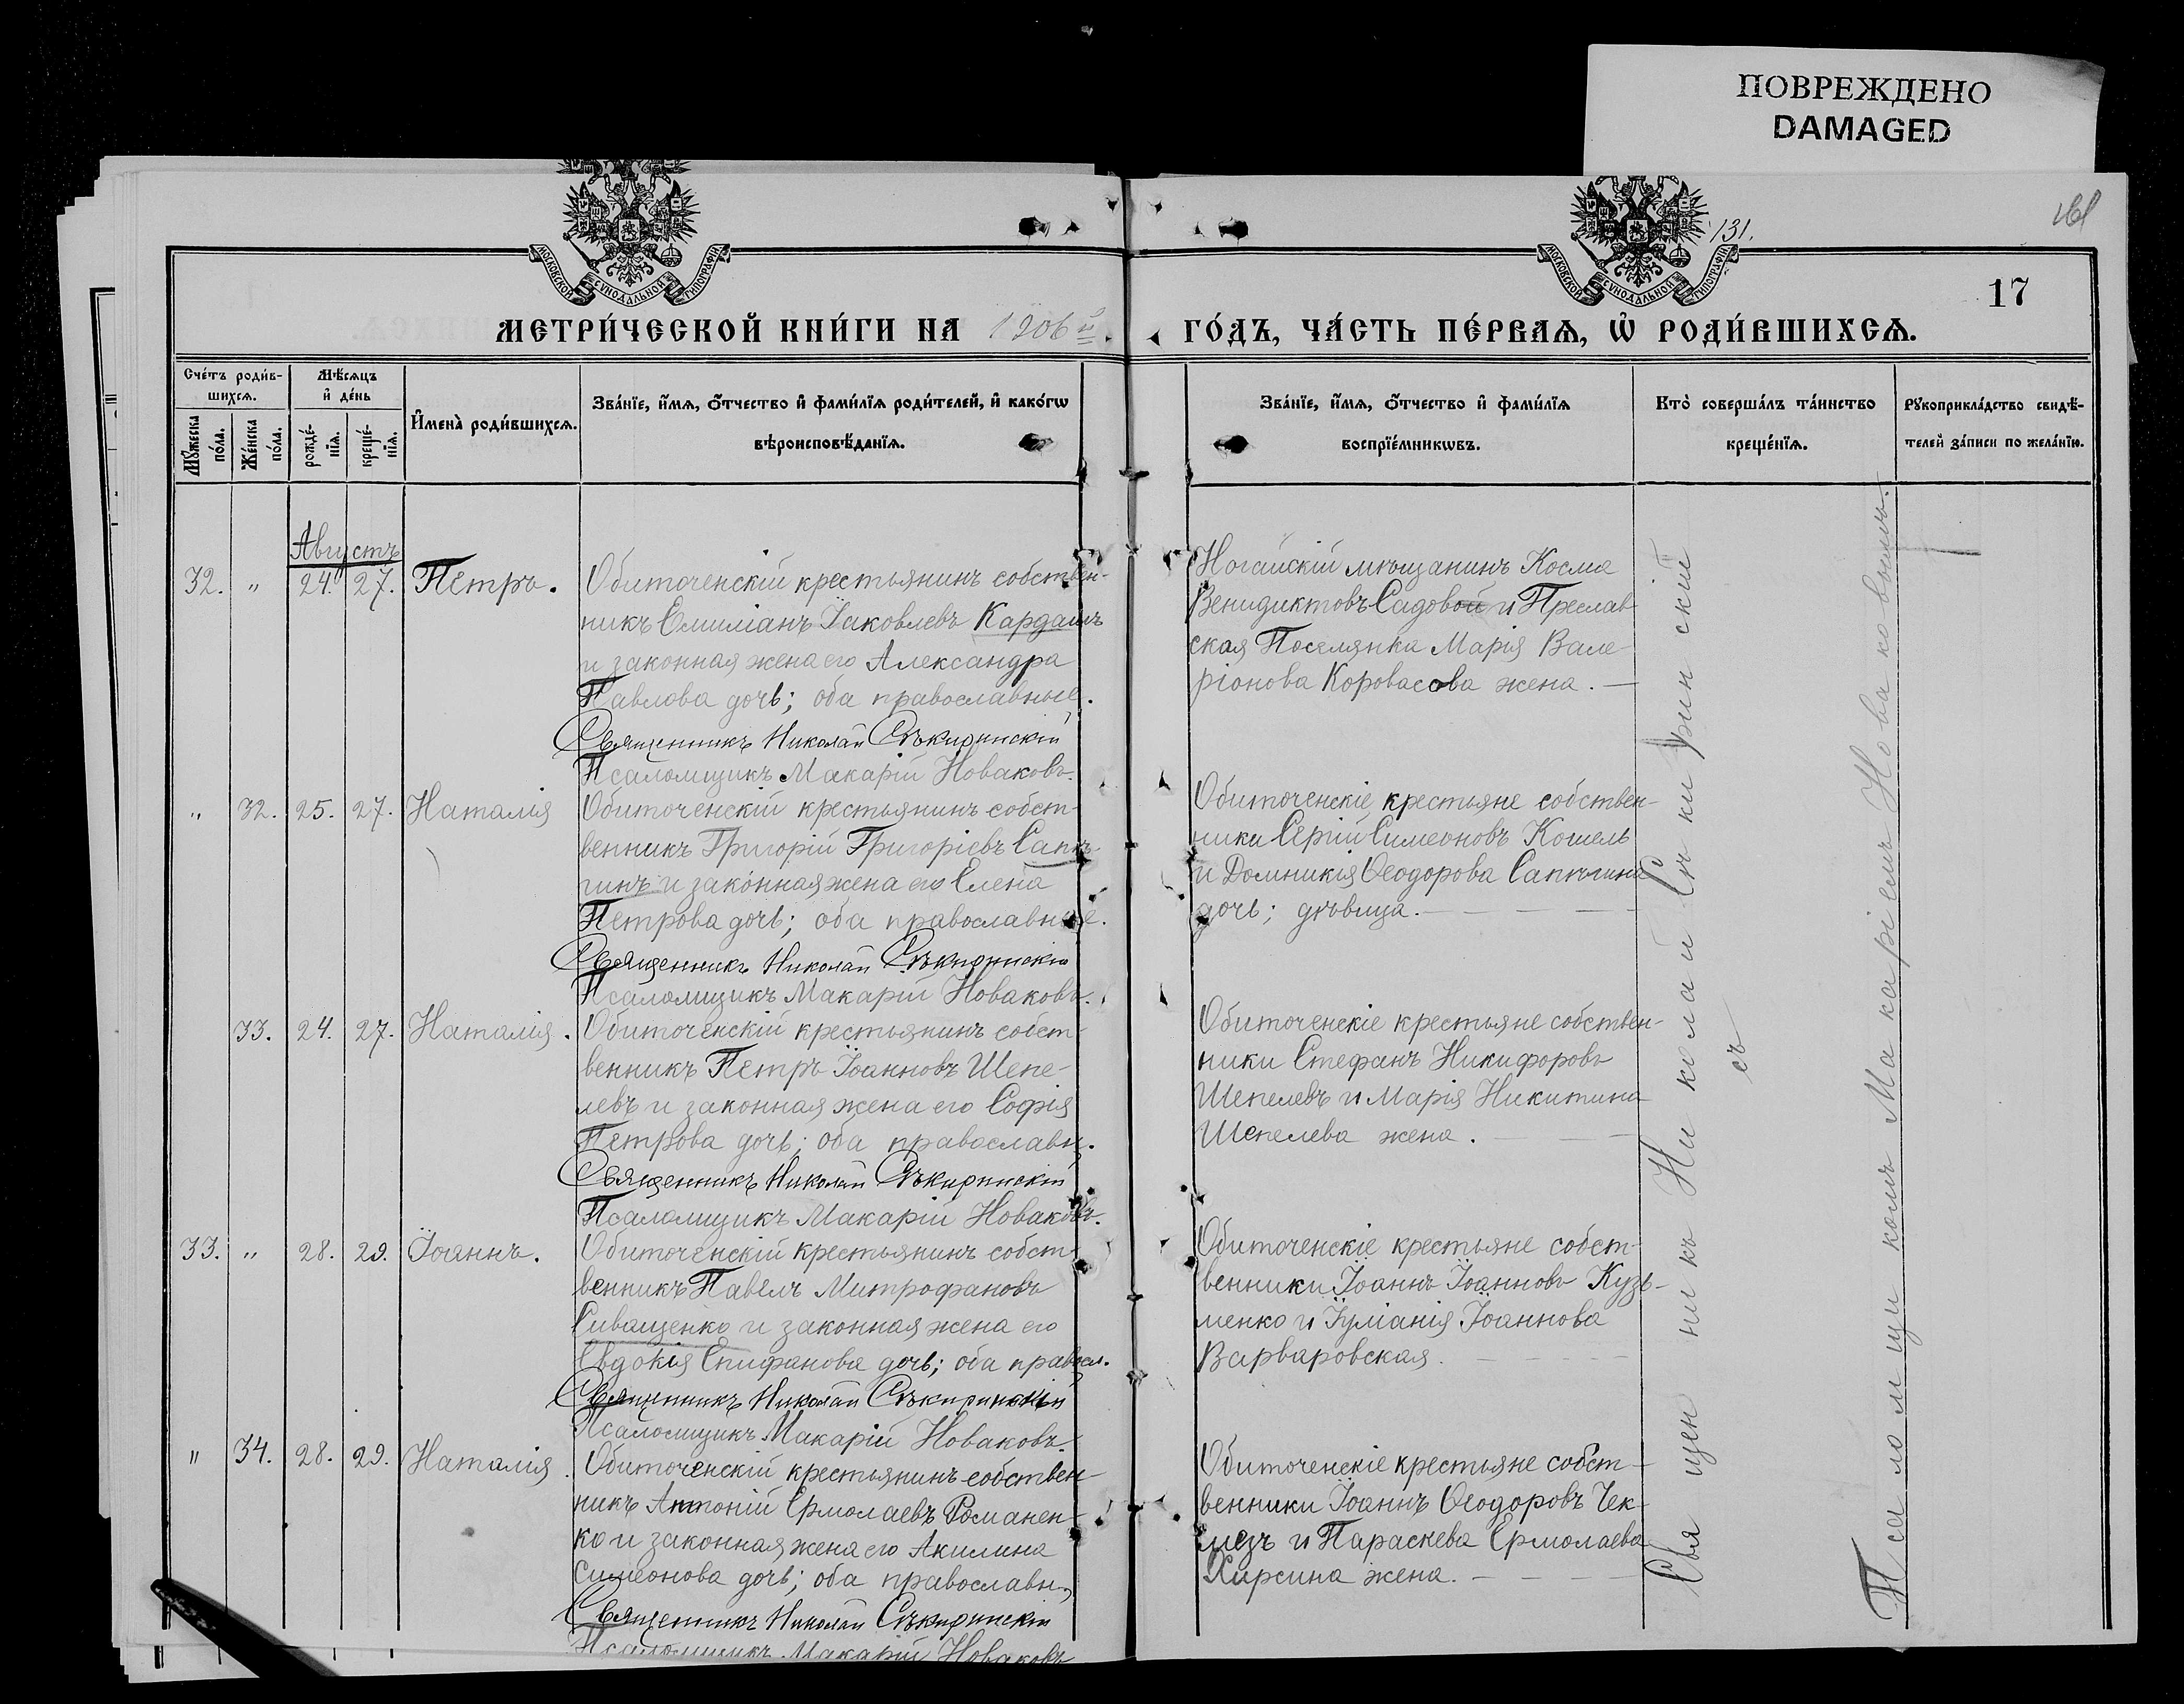 ПОВРЕЖДЕНО
DAMAGED
131.
161
17
МОСКОВСКОЙ СѴНОДАЛЬНОЙ ТИПОГРАФІИ
МОСКОВСКОЙ СѴНОДАЛЬНОЙ ТИПОГРАФІИ
МЕТРИ́ЧЕСКОЙ КНИ́ГИ НА 1906й ГО́ДЪ, ЧА́СТЬ ПЕ́РВАѦ, Ѡ҆ РОДИ́ВШИХСѦ.
Сче́тъ роди́в-
шихсѧ.
Мꙋ́жеска
по́ла.
Же́нска
по́ла.
Мѣ́сѧцъ
и҆ де́нь
рожде́-
нїѧ.
креще́-
нїѧ.
И҆мена̀ роди́вшихсѧ.
Зва́нїе, и҆́мѧ, ѻ҆́тчество и҆ фами́лїѧ роди́телей, и҆ како́гѡ
вѣ́роисповѣ́данїѧ.
Зва́нїе, и҆́мѧ, ѻ҆́тчество и҆ фами́лїѧ
воспрїе́мникѡвъ.
Кто̀ соверша́лъ та́инство
креще́нїѧ.
Рꙋкоприкла́дство свидѣ́-
телей за́писи по жела́нїю.
Августъ
32. " 24. 27. Петръ.
Обиточенскій крестьянинъ собствен-
никъ Емиліанъ Іаковлевъ Кардашъ
и законная жена его Александра
Павлова дочь; оба православные.
Священникъ Николай Сѣкиринскій
Псаломщикъ Макарій Новаковъ.
Ногайскій мѣщанинъ Косма
Венидиктовъ Садовой и Преслав
ская Поселянка Марія Вале-
ріонова Коровасова жена. —
" 32. 25. 27. Наталія
Обиточенскій крестьянинъ собст-
венникъ Григорій Григоріевъ Сапѣ-
гинъ и законная жена его Елена
Петрова дочь; оба православные.
Священникъ Николай Сѣкиринскій
Псаломщикъ Макарій Новаковъ.
Обиточенскіе крестьяне собствен-
ники Сергій Симеоновъ Кошель
и Домникія Ѳеодорова Сапѣгина
дочь; дѣвица. — — — —
33. 24. 27. Наталія.
Обиточенскій крестьянинъ собст-
венникъ Петръ Іоанновъ Шепе-
левъ и законная жена его Софія
Петрова дочь; оба православн.
Священникъ Николай Сѣкиринскій
Псаломщикъ Макарій Новаковъ.
Обиточенскіе крестьяне собствен-
ники Стефанъ Никифоровъ
Шепелевъ и Марія Никитина
Шепелева жена. — — —
33. " 28. 29. Іоаннъ.
Обиточенскій крестьянинъ собст-
венникъ Павелъ Митрофановъ
Сиващенко и законная жена его
Евдокія Епифанова дочь; оба правосл.
Священникъ Николай Сѣкиринскій
Псаломщикъ Макарій Новаковъ.
Обиточенскіе крестьяне собст-
венники Іоаннъ Іоанновъ Кузь-
менко и Іуліанія Іоаннова
Варваровская. — — — —
" 34. 28. 29. Наталія.
Обиточенскій крестьянинъ собствен-
никъ Антоній Ермолаевъ Романен-
ко и законная жена его Акилина
Симеонова дочь; оба православн.
Священникъ Николай Сѣкиринскій
Псаломщикъ Макарій Новаковъ
Обиточенскіе крестьяне собст-
венники Іоаннъ Ѳеодоровъ Чек-
мезъ и Параскева Ермолаева
Хирсина жена. — — — —
Священникъ Николай Сѣкиринскій
съ
Псаломщикомъ Макаріемъ Новаковымъ.